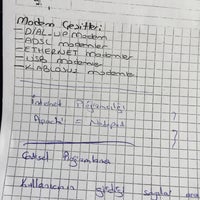 Modem Çeşitleri
- DIAL-UP modem
- ADSL modemler
- ETHERNET modemler
- USB modemler
- KABLOSUZ modemler
İnternet
Apache = Notepad
Görsel Programlama
Kullanıcının girdiği sayılar